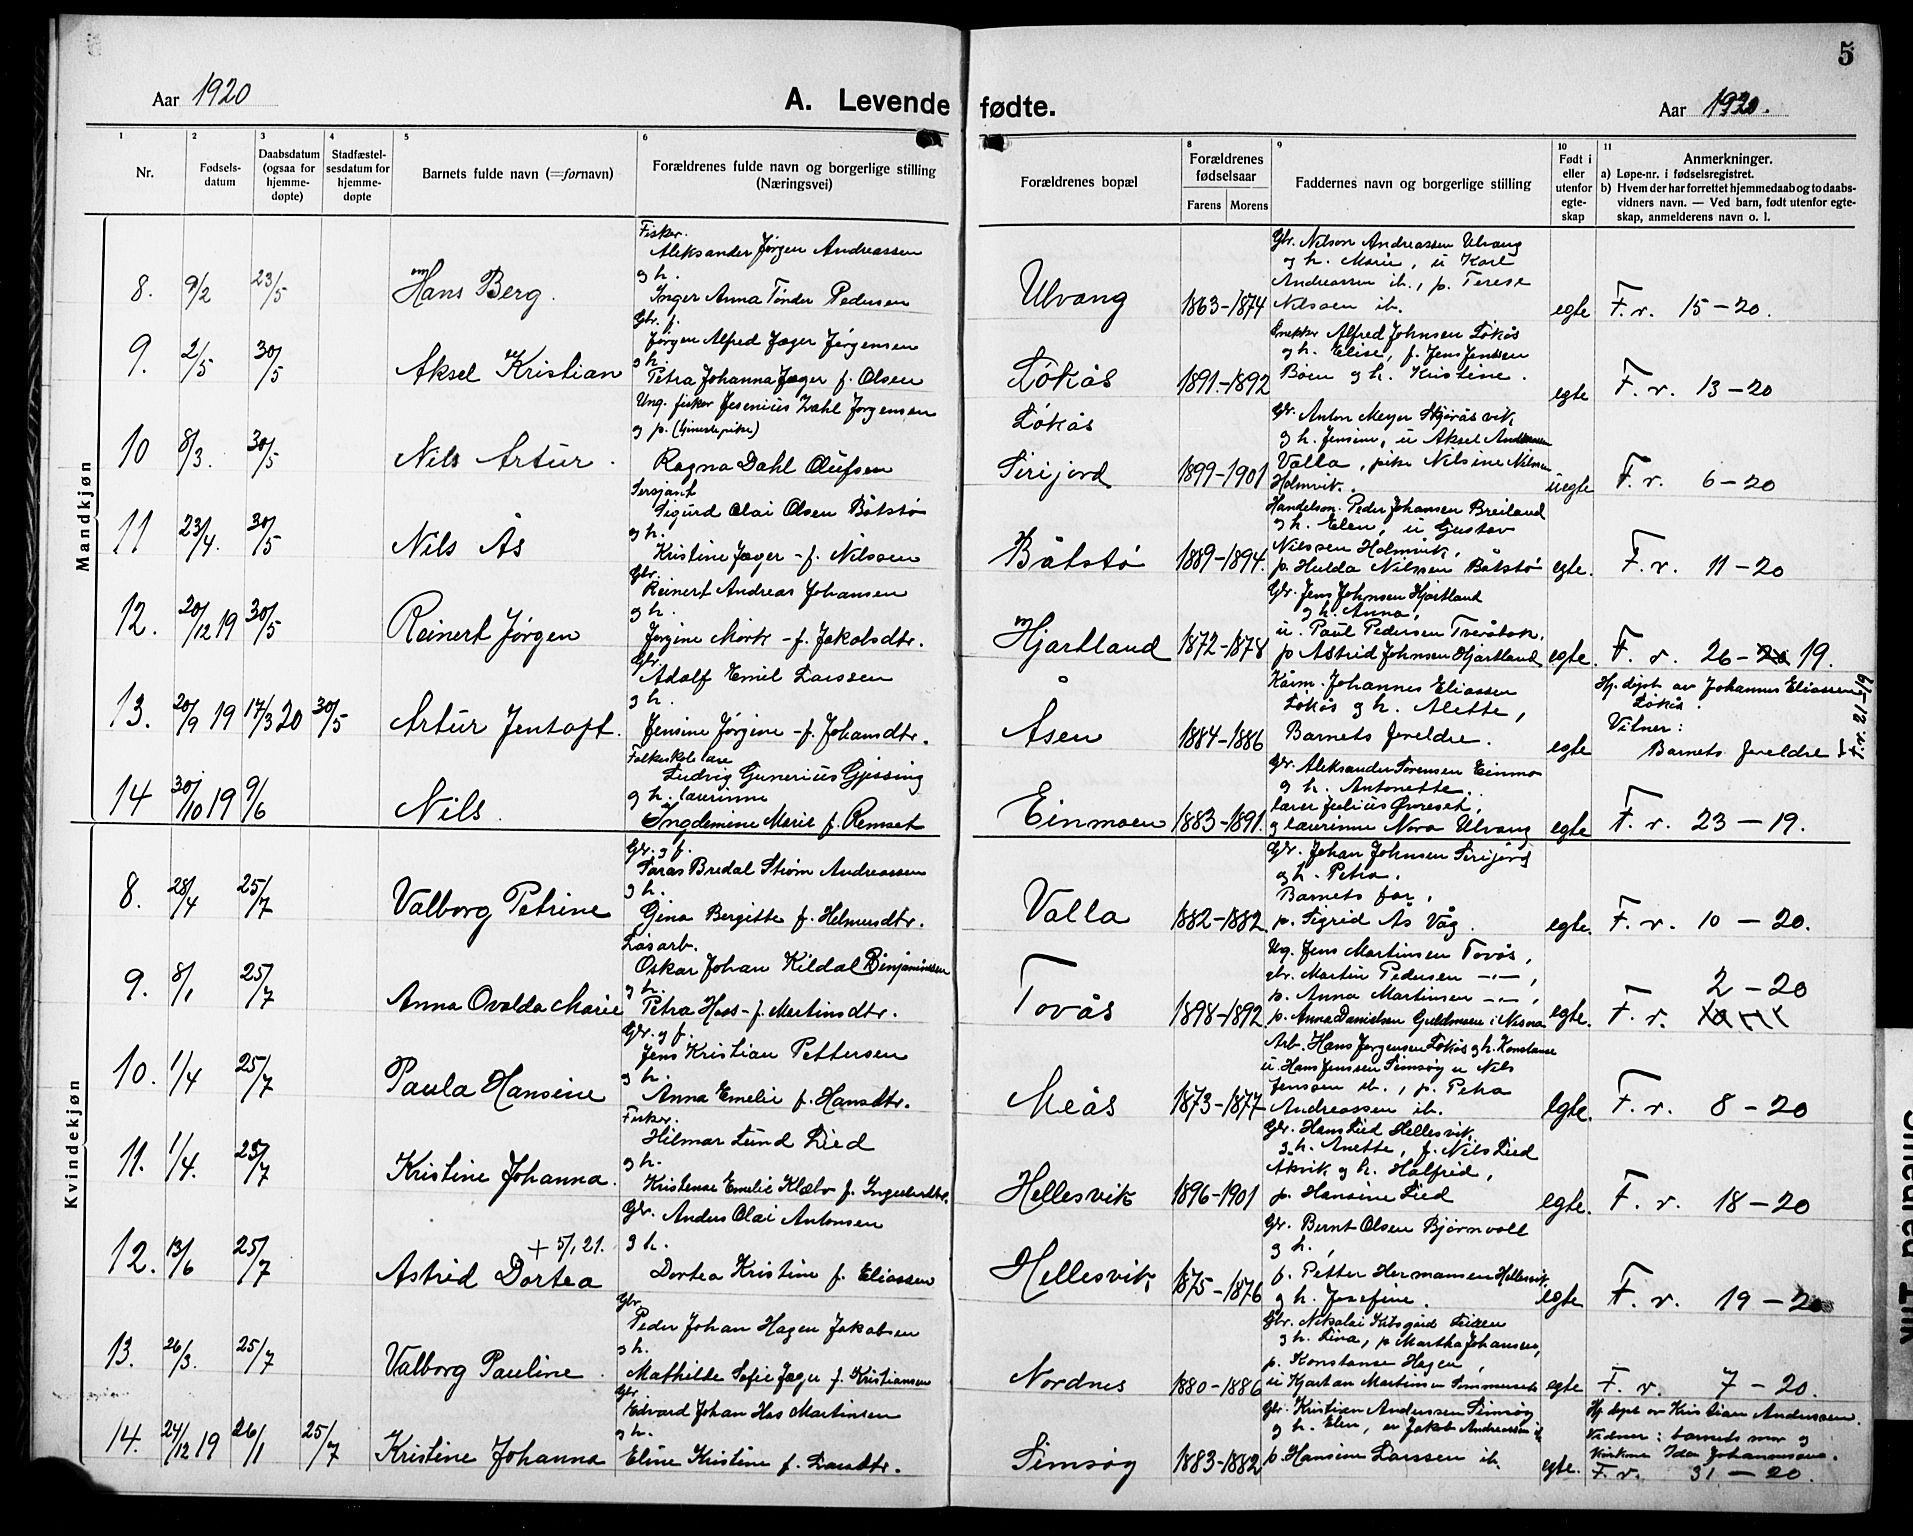 5
Aar 1920
A. Levende fødte.
Aar 1920.
1 2 3 4 5 6 8 9 10 11
Nr.
Fødsels-
datum
Daabsdatum
(ogsaa for
hjemme-
døpte)
Stadfæstel-
sesdatum for
hjemme-
døpte
Barnets fulde navn (=fornavn)
Forældrenes fulde navn og borgerlige stilling
(Næringsvei)
Forældrenes bopæl
Forældrenes
fødselsaar
Farens Morens
Faddernes navn og borgerlige stilling
Født i
eller
utenfor
egte-
skap
Anmerkninger.
a) Løpe-nr. i fødselsregistret.
b) Hvem der har forrettet hjemmedaab og to daabs-
vidners navn. — Ved barn, født utenfor egte-
skap, anmelderens navn o. l.
Mandkjøn
8. 9/2 23/5 Hans Berg.
Fisker.
Aleksander Jørgen Andreassen
og h.
Inger Anna Tønder Pedersen
Ulvang 1863-1874
Gbr. Nilson Andreassen Ulvang
og h. Marie, u Karl
Andreassen ib., p. Terese
Nilssen ib.
egte F. r. 15-20.
9. 2/5 30/5 Aksel Kristian
Gbr. f.
Jørgen Alfred Jæger Jørgensen
og h.
Petra Johanna Jæger f. Olsen
Løkås 1891-1892
Snekker Alfred Johnsen Løkås
og h. Elise, f. Jens Jentsen
Bøen og h. Kristine.
egte F. r. 13-20
10 8/3. 30/5 Nils Artur.
Ung. fisker Jesenius Zahl Jørgensen
og p. (tjenestepike)
Ragna Dahl Olufsen
Løkås
Sirijord 1899-1901
Gbr. Anton Meyer
og h. Jensine, u Aksel
Valla, pike Nilsine Nilsen
Holmvik.
uegte F. r. 6-20
11 23/4. 30/5 Nils Ås
Sersjant
Sigurd Olai Olsen Båtstø
og h.
Kristine Jæger - f. Nilssen
Båtstø 1889-1894.
Handelsm. Peder Johansen Breiland
og h. Elen, u Gustav
Nilssen Holmvik,
p. Hulda Nilssen Båtstø
egte. F. r. 11-20
12. 20/12 19 30/5 Reinert Jørgen
Gbr.
Reinert Andreas Johansen
og h.
Jørgine Mørk - f. Jakobsdtr.
Hjartland 1872-1878
Gbr. Jens Johnsen Hjartland
og h. Anna,
u. Paul Pedersen Tveråbak.
p Astrid Johnsen Hjartland
egte. F. r. 26-20 19.
13. 20/9 19 17/3 20 30/5 Artur Jentoft.
Gbr.
Adolf Emil Larssen
og h.
Jensine Jørgine - f. Johansdtr.
Åsen 1884-1886
Kårm. Johannes Eliassen
Løkås og h. Alette,
Barnets foreldre.
egte
Hj. døpt av Johannes Eliassen
Løkås.
Vitner:
Barnets foreldre
F. r. 21-19
14 30/10 19 9/6 Nils.
Folkeskolelærer
Ludvig Gunerius Gjessing
og h. lærerinne
Ingdemine Marie f. Remset
Einmoen 1883-1891.
Gbr. Aleksander Sørensen Einmo
og h. Antonette.
lærer Julius Øvreset,
og lærerinne Nora Ulvang
egte F. r. 23-19.
Kvindekjøn
8. 28/4 25/7 Valborg Petrine
Gbr. og f.
Saras Bredal Strøm Andreassen
og h.
Gina Bergitte f. Helmersdtr.
Valla 1882-1882.
Gbr. Johan Johnsen Sirijord
og h. Petra.
Barnets far,
p. Sigrid Ås Våg.
egte. F. r. 10-20.
9. 8/1 25/7 Anna Ovalda Marie
Løsarb.
Oskar Johan Kildal Benjaminsen
og h.
Petra Haas - f. Martinsdtr.
Tovås 1898-1892
Ug. Jens Martinsen Tovås,
gbr. Martin Pedersen -"-,
p. Anna Martinsen -"-,
p. Anna Danielsen Guldmoen i Nesna
egte. F. r. 2-20
10. 1/4 25/7 Paula Hansine
Gbr. og f.
Jens Kristian Pettersen
og h.
Anna Emelie f. Hansdtr.
Meås 1873-1877
Arb. Hans Jørgensen Løkås og h. Konstanse
u. Hans Jenssen Simsøy u Nils
Jenssen ib., p. Petra
Andreassen ib.
egte. F. r. 8-20
11. 1/4. 25/7 Kristine Johanna.
Fisker.
Hilmar Lund Lied
og h.
Kristense Emelie Klæbo f.
Hellesvik 1896-1901
Gbr. Hans Lied Hellesvik
og h. Anette, f. Nils Lied
Åkvik og h. Halfrid,
p. Hansine Lied
egte. F. r. 18-20
12. 13/6 25/7 Astrid Dortea
+ 5/1 21.
Gbr. Anders Olai Antonsen
og h.
Dortea Kristine f. Eliassen
Hellesvik 1875-1876
Gbr. Bernt Olsen Bjørnvoll
og h.,
f. Petter Hermansen Hellesvik
og h. Josefine.
egte F. r. 19-20
13. 26/3. 25/7 Valborg Pauline.
Gbr
Peder Johan Hagen Jakobsen
og h.
Mathilde Sofie Jæger f. Kristiansen
Nordnes 1880-1886
Gbr. Nikolai
og h. Lina, p Martha Johansen,
p. Konstanse Hagen,
u Kjartan Martinsen
egte F. r. 7-20.
14. 24/12 19 26/1 25/7 Kristine Johanna
Gbr
Edvard Johan Has Martinsen
og h.
Eline Kristine f. Larsdtr.
Simsøy 1883-1882
Gbr. Kristian Anderssen Simsøy
og h. Elen, u Jakob Andreassen ib
p. Hansine Larssen ib.
egte.
Hj. døpt av Kristian Anderssen.
Vidner: barnets mor og
Ida Johannessen.
F. r. 31-20.